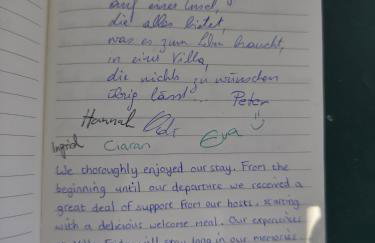 auf einer Insel,
die alles bietet,
was es zum Leben braucht,
in einer Villa,
die nichts zu wünschen
übrig lässt... Peter
Hannah
Eva
Ingrid Ciaran
We thoroughly enjoyed our stay. From the
beginning until our departure we received a
great deal of support from our hosts, starting
with a delicious welcome meal. Our experiences
will stay long in our memories.